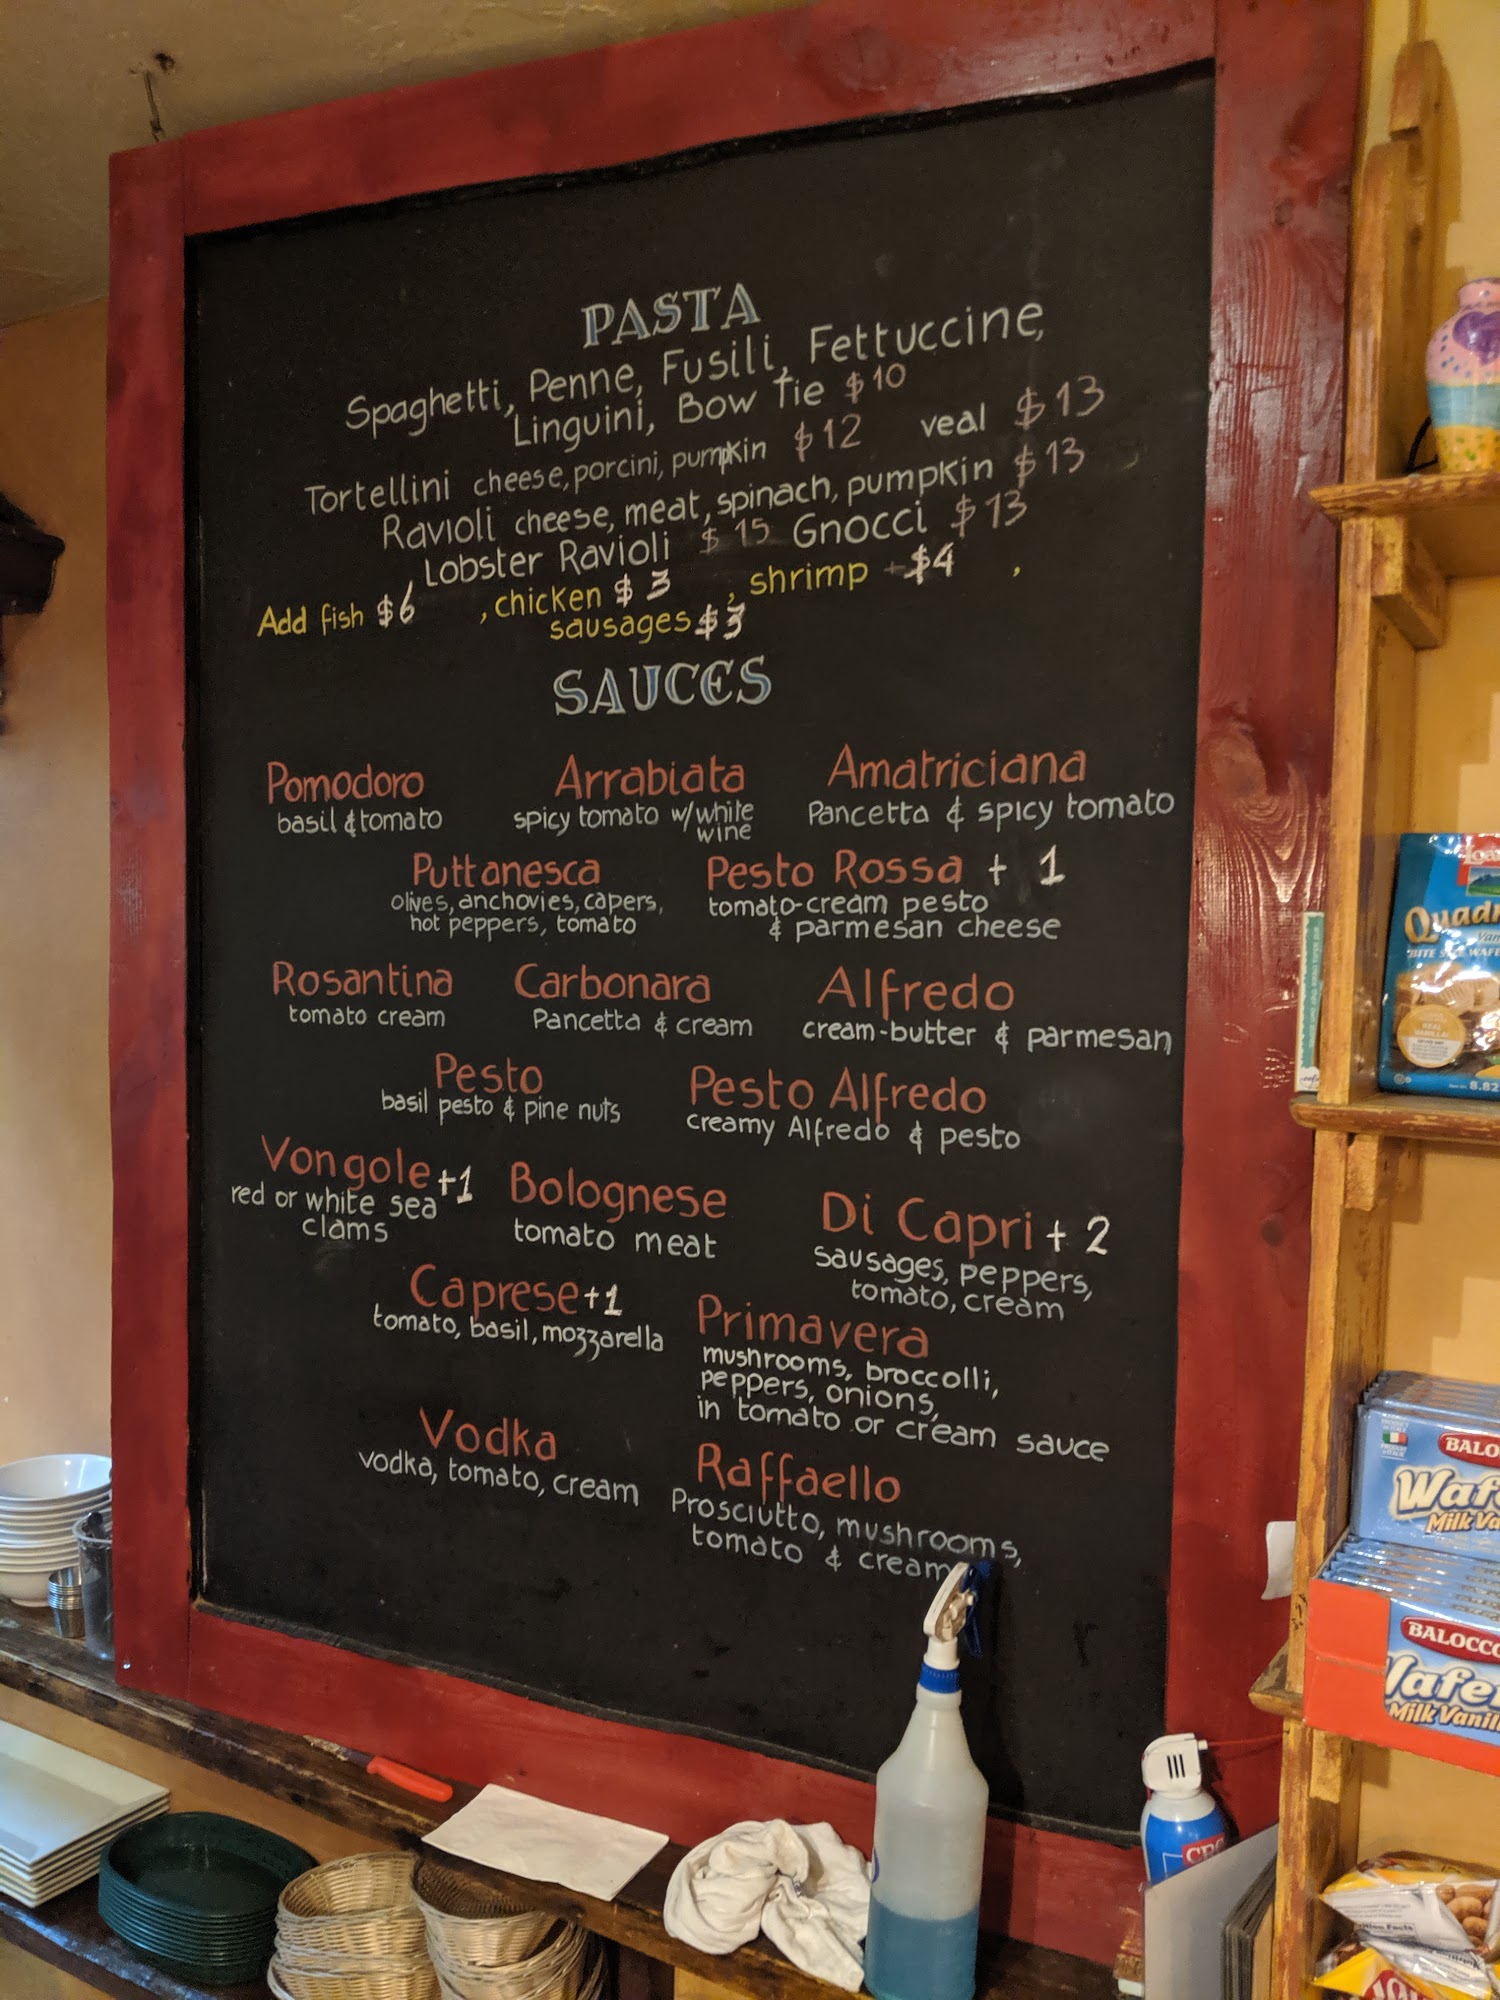 PASTA
Spaghetti, Penne, Fusili, Fettuccine,
Linguini, Bow Tie $10
Tortellini cheese, porcini, pumpkin $12 veal $13
Ravioli cheese, meat, spinach, pumpkin $13
Lobster Ravioli $15 Gnocci $13
Add fish $6 , chicken $3 , shrimp $4 ,
sausages $3
SAUCES
Pomodoro
basil & tomato
Arrabiata
spicy tomato w/white
wine
Amatriciana
Pancetta & spicy tomato
Puttanesca
olives, anchovies, capers,
hot peppers, tomato
Pesto Rossa + 1
tomato-cream pesto
& parmesan cheese
Rosantina
tomato cream
Carbonara
Pancetta & cream
Alfredo
cream-butter & parmesan
Pesto
basil pesto & pine nuts
Pesto Alfredo
creamy Alfredo & pesto
Vongole +1
red or white sea
clams
Bolognese
tomato meat
Di Capri + 2
sausages, peppers,
tomato, cream
Caprese +1
tomato, basil, mozzarella
Primavera
mushrooms, broccolli,
peppers, onions,
in tomato or cream sauce
Vodka
vodka, tomato, cream
Raffaello
Prosciutto, mushrooms,
tomato & cream
BITE
REAL
VANILLA
8.82
BALO
Waf
Milk Va
BALOCCO
Wafe
Milk Vanil